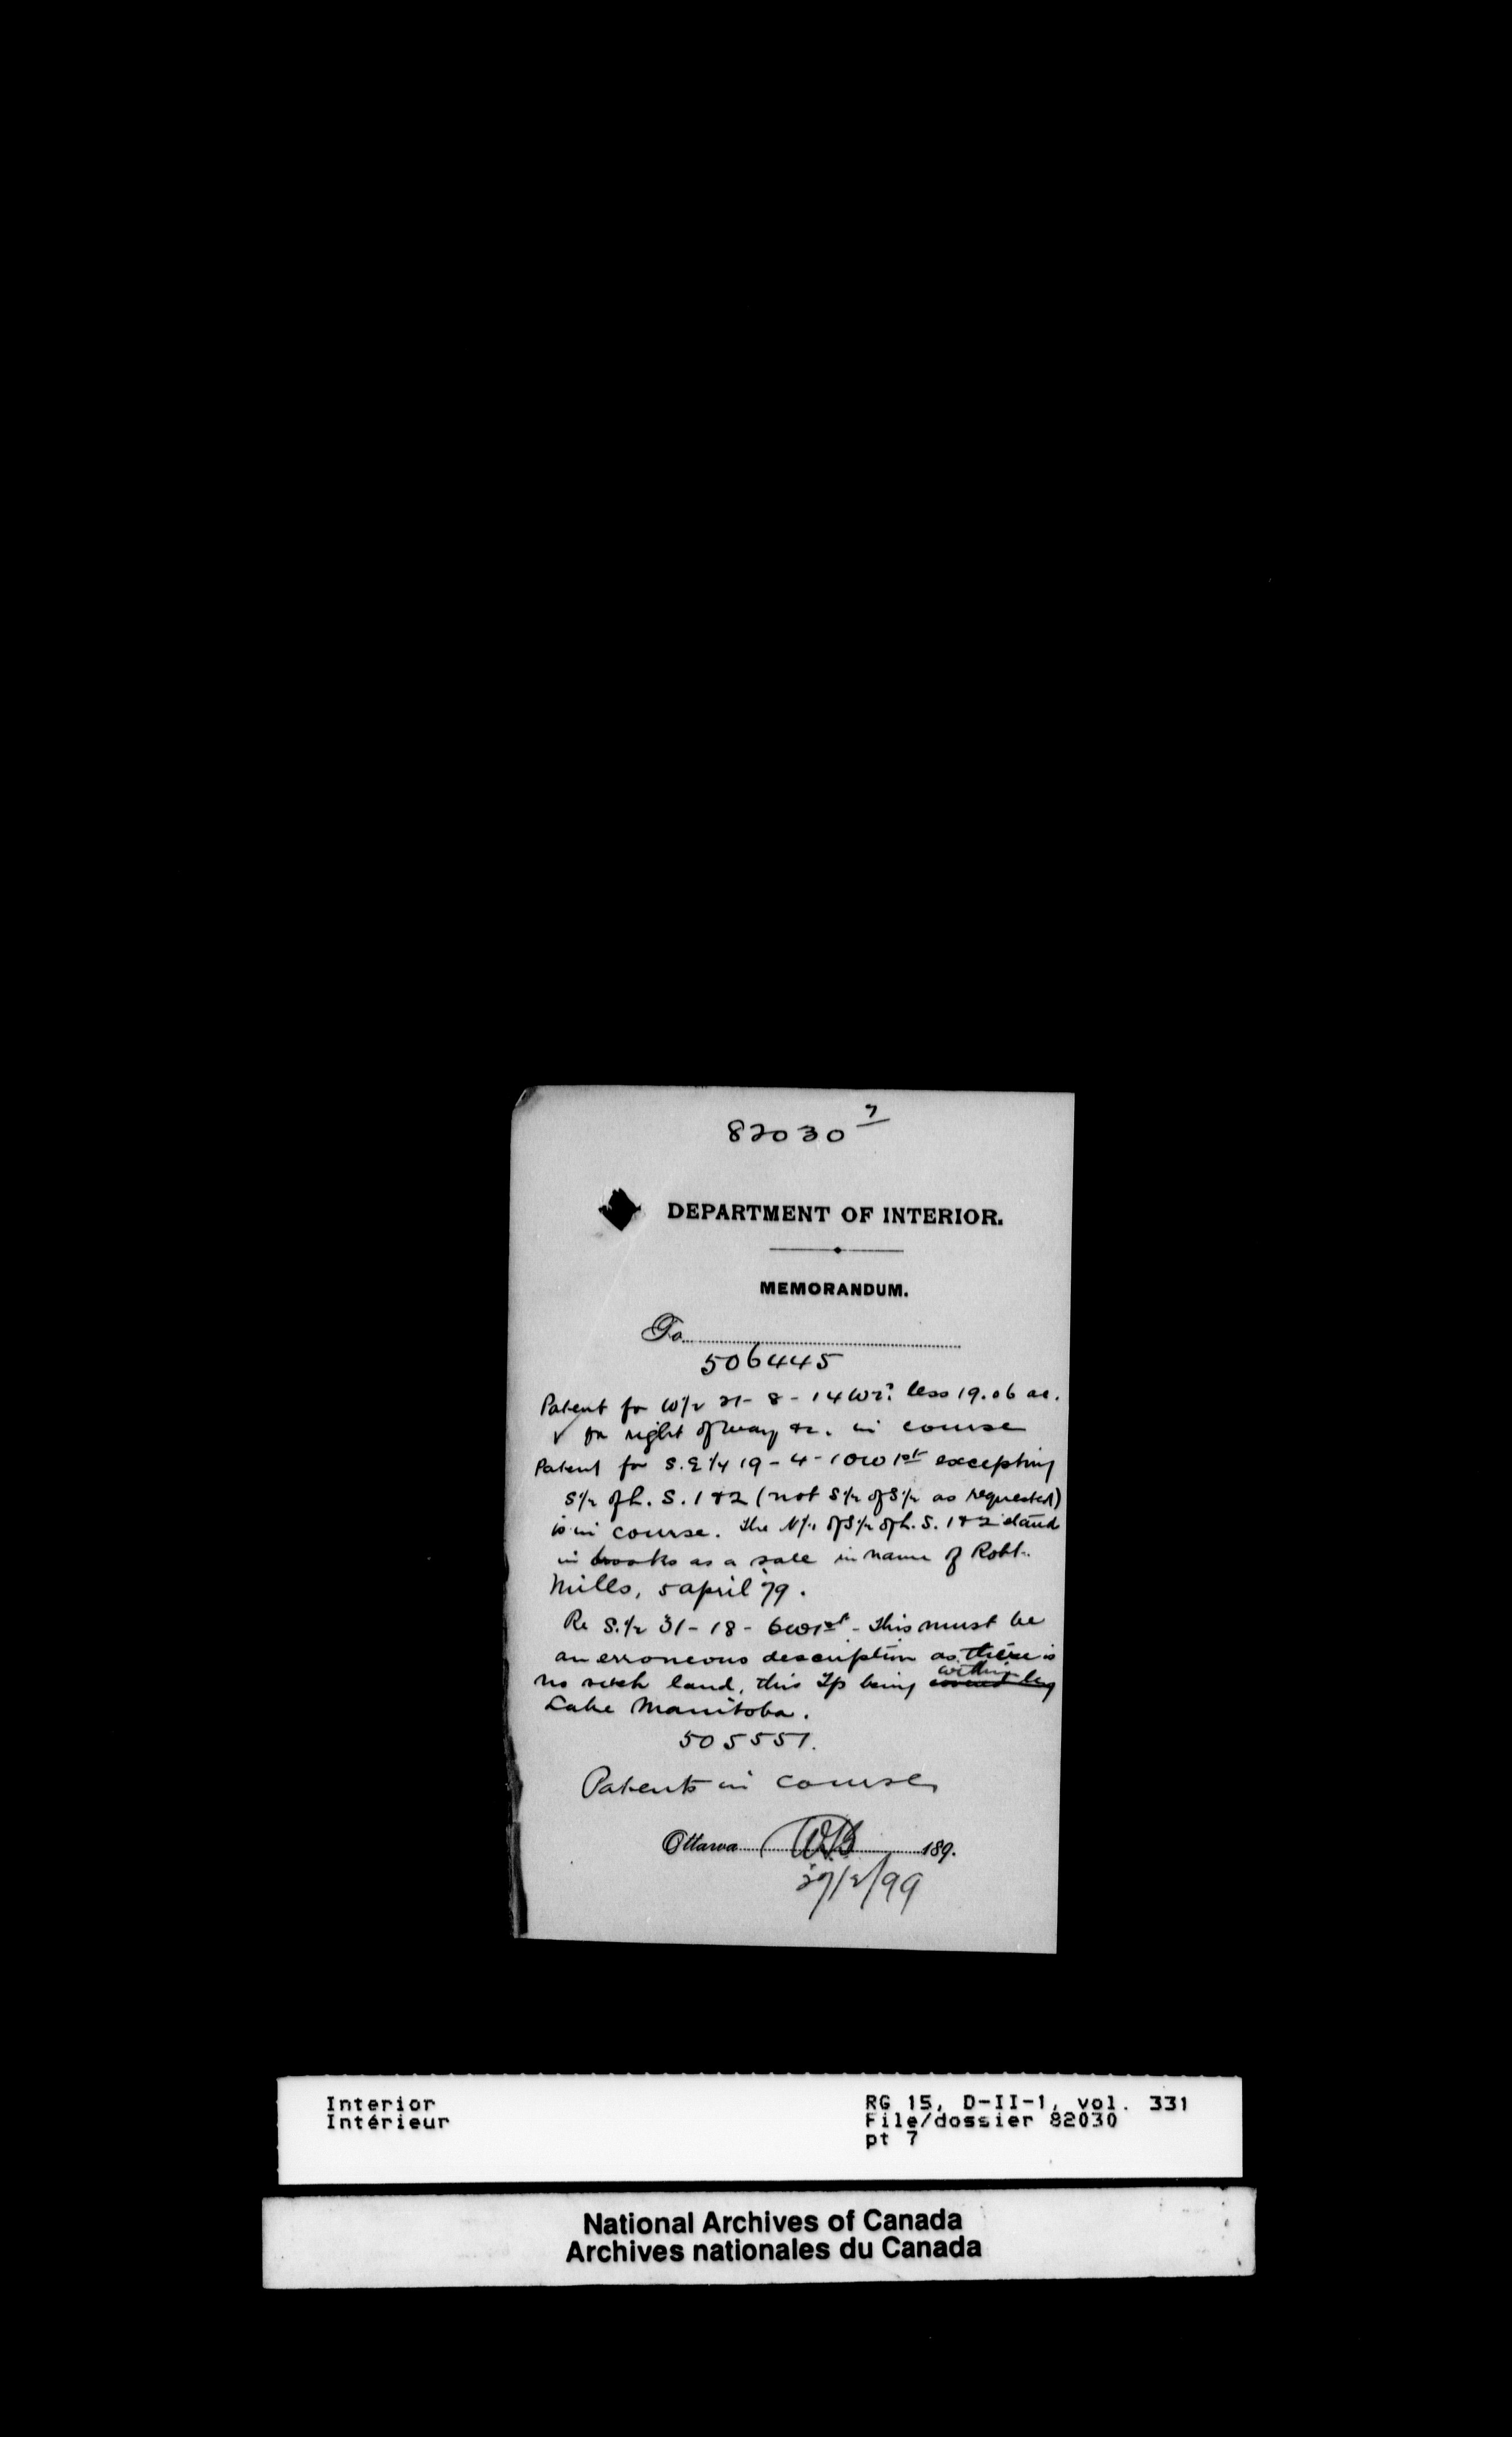 82030 7
DEPARTMENT OF INTERIOR.
MEMORANDUM.
To
506445
Patent for W/2 21-8-14 W2? less 19.06 ac.
✓ for right of way &c. in course
Patent for S.E 1/4 19-4-10W1st excepting
S1/2 of L.S. 1 & 2 (not S1/2 of S1/2 as requested)
is in course. The N1/2 of S1/2 of L.S. 1 & 2 stand
in books as a sale in name of Robt.
Mills, 5 April '79.
Re S.1/2 31-18-6W1st - This must be
an erroneous description as there is
no such land, this Tp being within
Lake Manitoba.
505551.
Patents in course
Ottawa 189.
27/2/99
Interior
Intérieur
RG 15, D-II-1, vol. 331
File/dossier 82030
pt 7
National Archives of Canada
Archives nationales du Canada